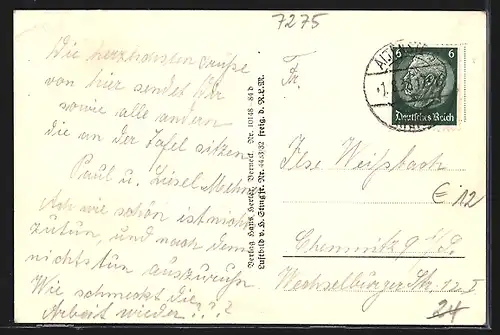 7275
Die herzlichsten Grüße
von hier sendet Dir
sowie alle andern
die an der Tafel sitzen
Paul u. Liesel
Ach wie schön ist nichts
zutun, und nach dem
nichtstun auszuruhn.
Wie schmeckt die
Arbeit wieder???
Verlag Hans Herder, Berneck. Nr. 10148 84 d
Luftbild v. H. Nr. 443/32 freig. d. R.L.M.
6 6
Deutsches Reich
Frl.
Ilse Weißbach
€ 12
Chemnitz 9 i/S.
Wechselburger Str. 12 I
24